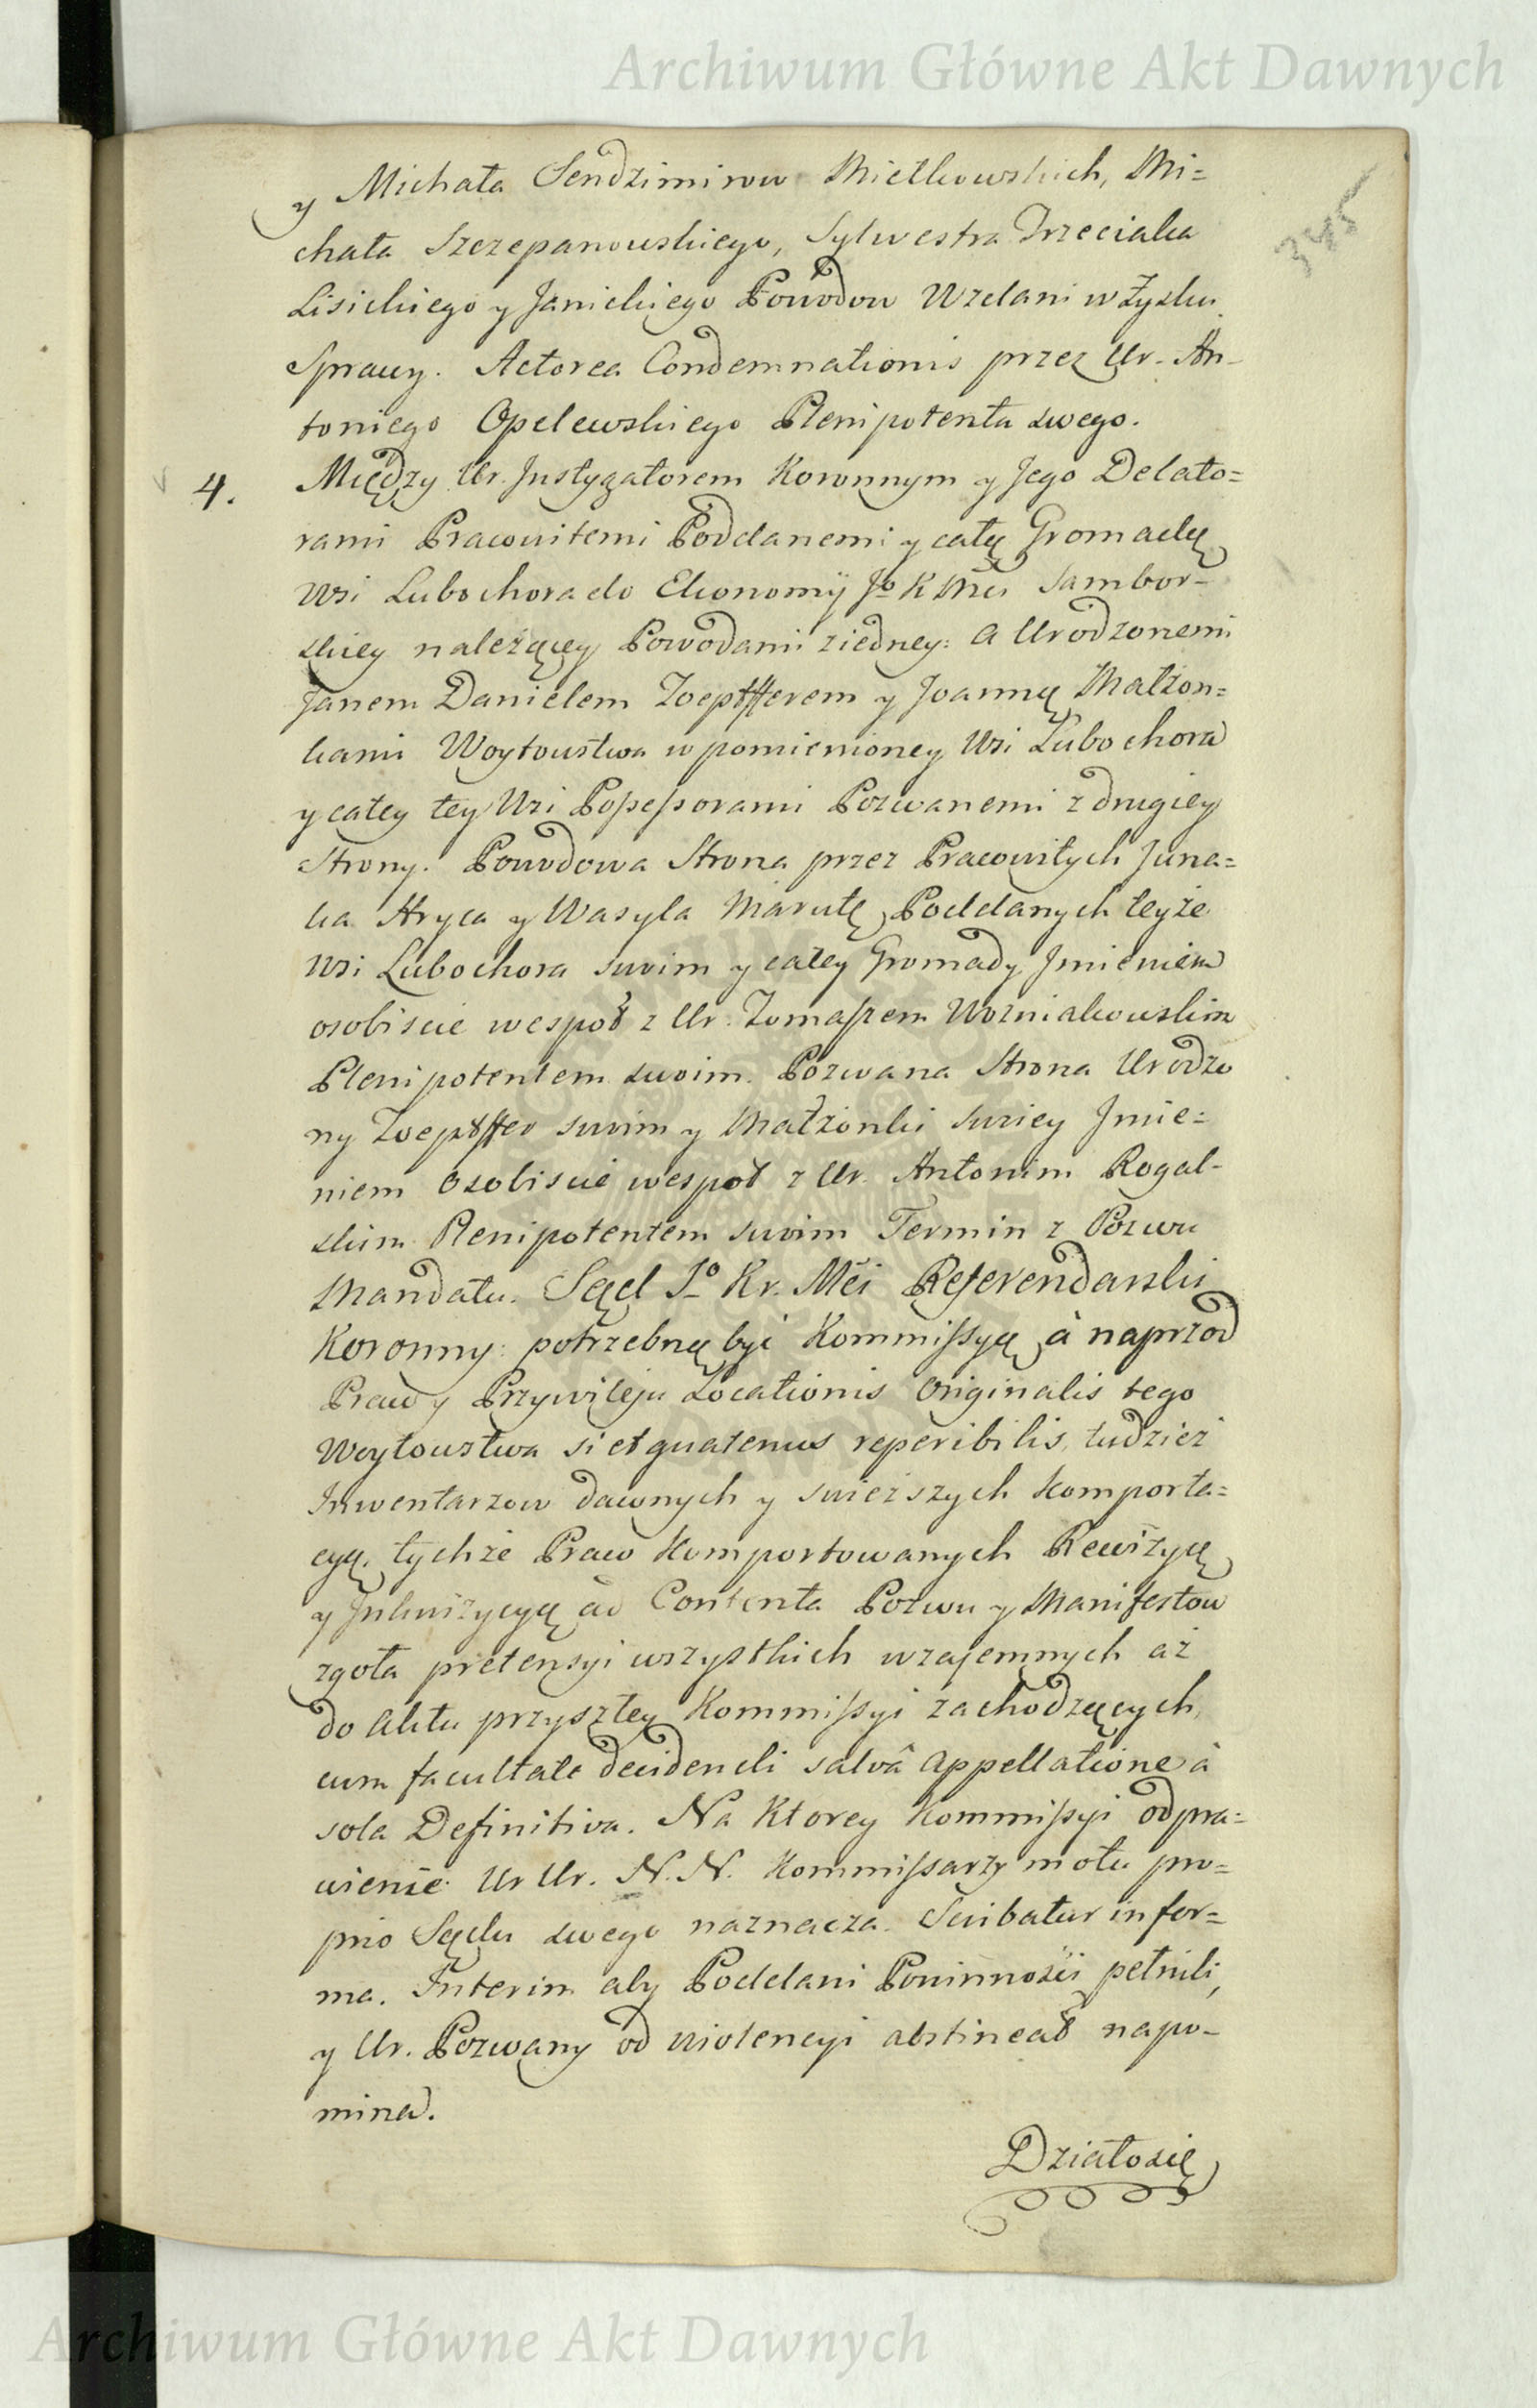 Archiwum Główne Akt Dawnych
345
y Michała Sendzimirow Mietkowskich, Mi=
chała Szczepanowskiego, Sylwestra Trzeciaka
Lisickiego y Janickiego Powodow Wzdani w Zysku
Sprawy. Actorea Condemnationis przez Ur. An-
toniego Opelewskiego Plenipotenta swego.
4. Między Ur. Instygatorem Koronnym y Jego Delato=
rami Pracowitemi Poddanemi y całą Gromadą
Wsi Lubochora do Ekonomij Jo K Mci Sambor-
skiey należącey Powodami z iedney: a Urodzonemi
Janem Danielem Zoepffferem y Joanną Małżon=
kami Woytowstwa w pomienioney Wsi Lubochora
y całey tey Wsi Possessorami Pozwanemi z drugiey
Strony. Powodowa Strona przez Pracowitych Juna=
ka Hryca y Wasyla Marutę Poddanych teyże
Wsi Lubochora swim y całey Gromady Jmieniem
osobiscie wespoł z Ur. Tomaszem Wozniakowskim
Plenipotentem swoim. Pozwana Strona Urodzo
ny Zoepffer swim y Małżonki swiey Jmie=
niem osobiscie wespoł z Ur. Antonim Rogal-
skim Plenipotentem swoim Termin z Pozwu
Mandatu. Sąd Jo Kr. Mci Referendarski
Koronny: potrzebną być Kommissyą, à naprzod
Praw y Przywileju Locationis Originalis tego
Woytowstwa si et quatenus reperibilis, tudzież
Inwentarzow dawnych y swieższych komporta=
cyą, tychże Praw komportowanych Rewizyą
y Jnkwizycyą ad Contenta Pozwu y Manifestow
zgoła pretensyi wszystkich wzajemnych aż
do aktu przyszłey Kommissyi zachodzących,
cum facultate decidendi salvâ appellatione à
sola Definitiva. Na ktorey Kommissyi odpra=
wienie Ur Ur. N. N. Kommissarzy motu pro=
prio Sądu swego naznacza. Scribatur in for=
ma. Interim aby Poddani Powinności pełnili,
y Ur. Pozwany od wiolencyi abstineat napo-
mina.
Działo się
Archiwum Główne Akt Dawnych